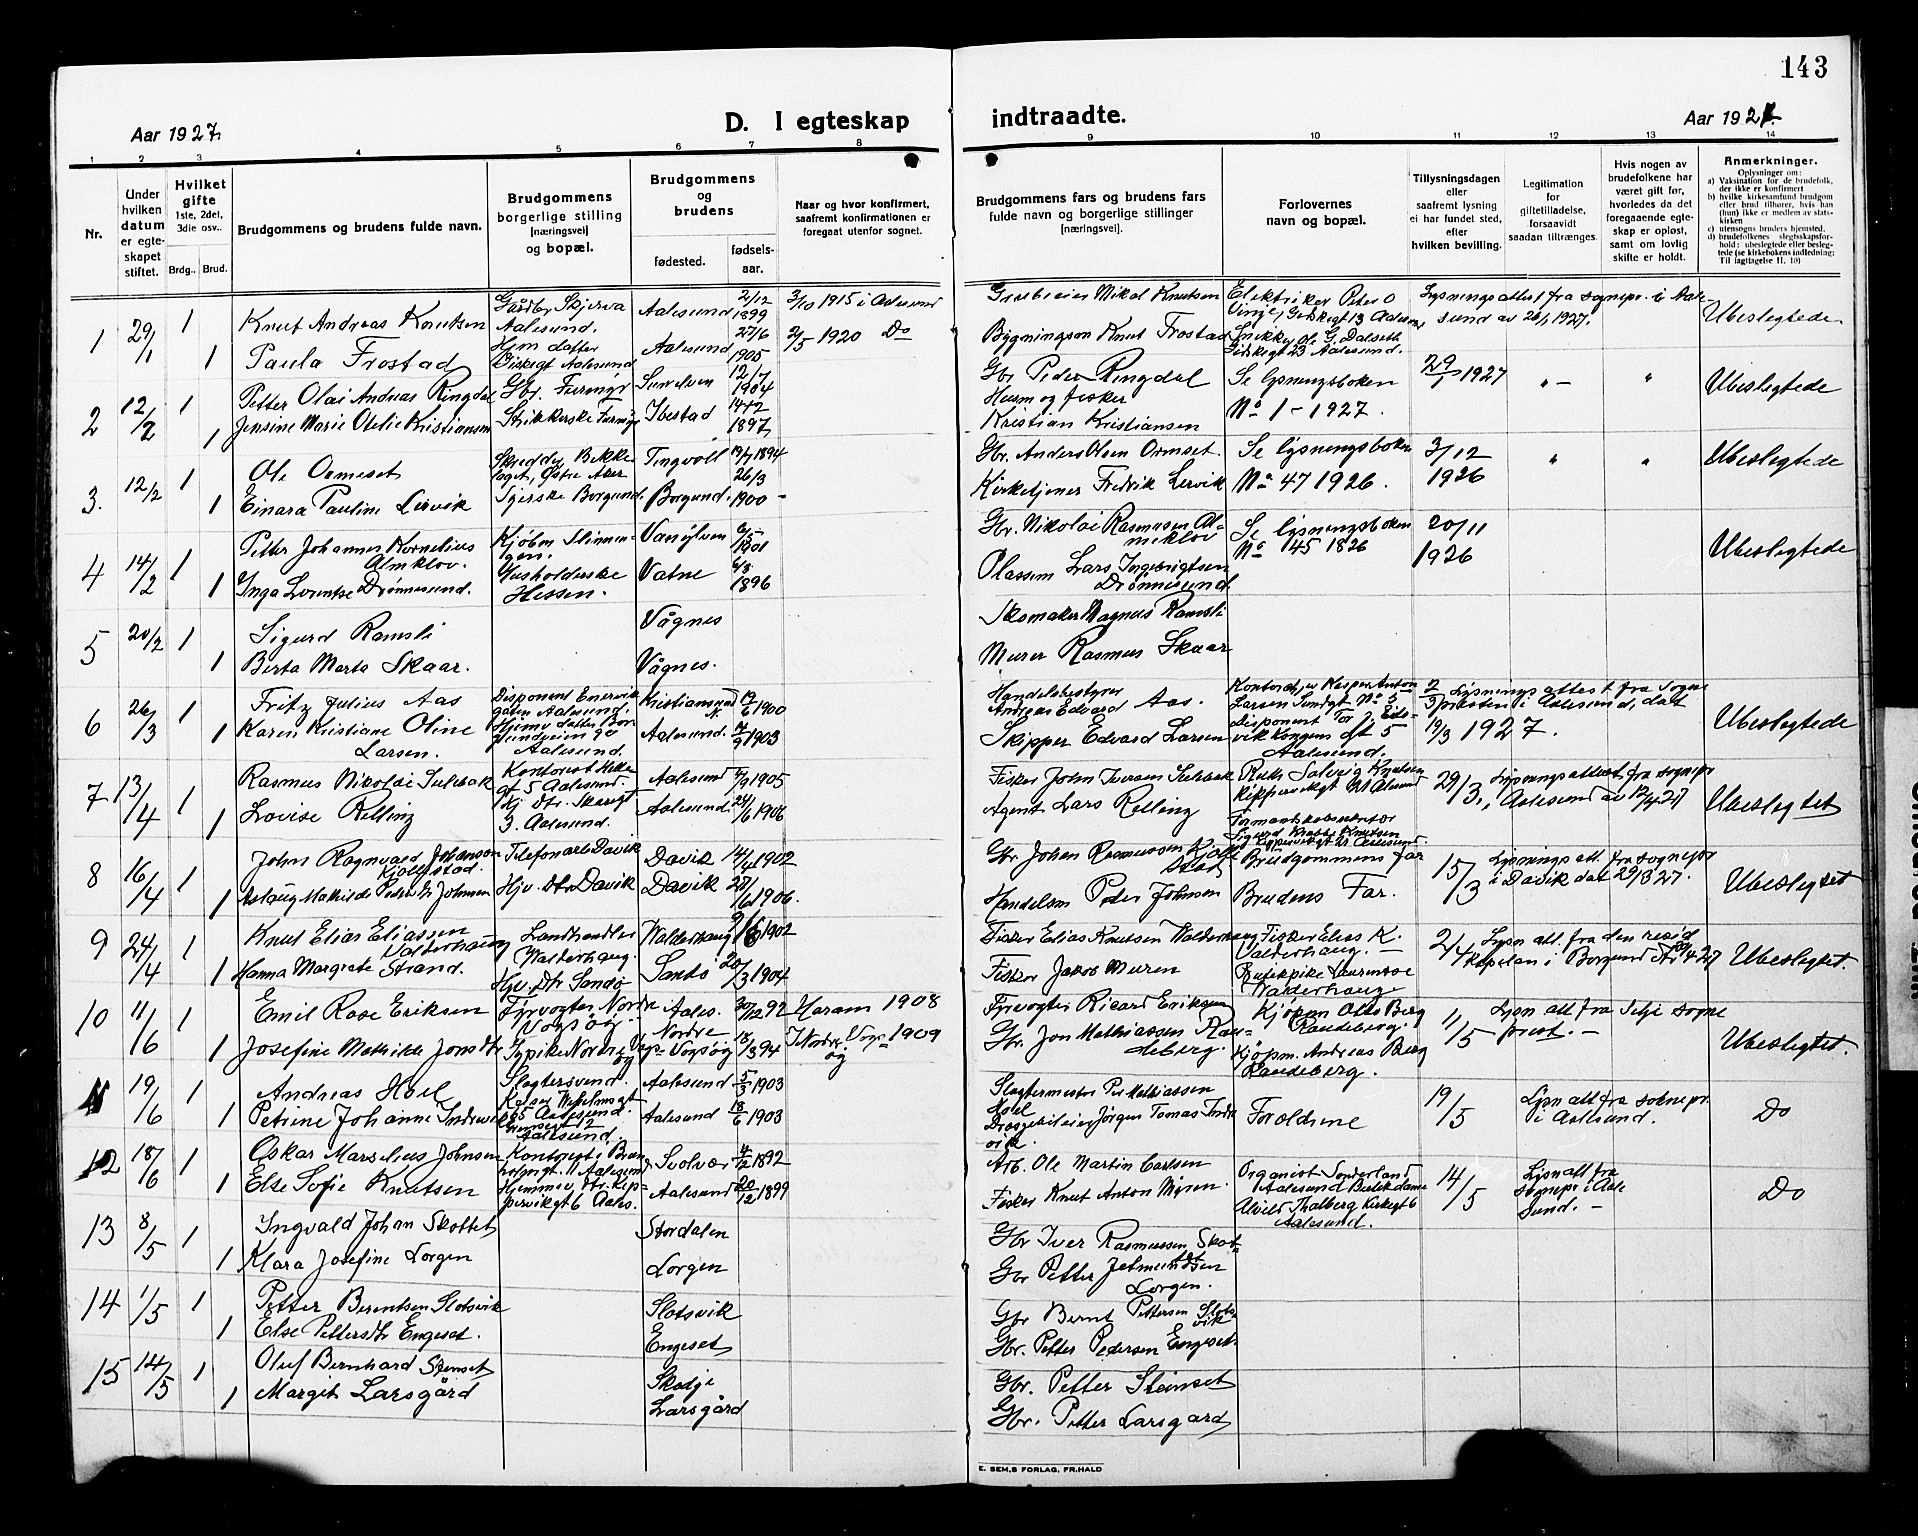 143
Aar 1927.
D. I egteskap
indtraadte.
Aar 1927.
1 2 3 4 5 6 7 8 9 10 11 12 13 14
Nr.
Under hvilken datum er egteskapet stiftet.
Hvilket gifte 1ste, 2det, 3die osv..
Brdg.. Brud.
Brudgommens og brudens fulde navn.
Brudgommens borgerlige stilling [næringsvei] og bopæl.
Brudgommens og brudens
fødested.
fødselsaar.
Naar og hvor konfirmert, saafremt konfirmationen er foregaat utenfor sognet.
Brudgommens fars og brudens fars fulde navn og borgerlige stillinger [næringsvei].
Forlovernes navn og bopæl.
Tillysningsdagen eller saafremt lysning ei har fundet sted, efter hvilken bevilling.
Legitimation for giftetilladelse, forsaavidt saadan tiltrænges.
Hvis nogen av brudefolkene har været gift før, hvorledes da det foregaaende egteskap er opløst, samt om lovlig skifte er holdt.
Anmerkninger.
Oplysninger om:
a) Vaksination for de brudefolk, der ikke er konfirmert
b) hvilke kirkesamfund brudgom eller brud tilhører, hvis han (hun) ikke er medlem av statskirken
c) utensogns bruders hjemsted.
d) brudefolkenes slegtsskapsforhold: ubeslegtede eller beslegtede (se kirkebokens indledning: Til iagttagelse II, 10)
1 29/1 1 Knut Andreas Knutsen Aalesund. Aalesund 2/12 1899 3/10 1915 i Aalesund Mikal Knutsen Elektriker Peter O Vinje, Lysningsattest fra sognepr. i Aalesund av 26/1 1927. Ubeslegtede.
1 Paula Frostad Hjm datter Aalesund Aalesund 27/6 1905 2/5 1920 Do Knut Frostad G. Dalseth Aalesund.
2 12/2 1 Petter Olai Andreas Ringdal Gbr. Sunelven 12/7 1904 Gbr Peder Ringdal Se lysningsboken No 1 - 1927. 29/1 1927 " - " Ubeslegtede
1 Jensine Marie Otelie Kristiansen Ibestad 14/12 1897 Husm og fisker Kristian Kristiansen
3. 12/2 1 Ole Ormset Østre Aker Tingvoll 1894 Gbr. Anders Olsen Ormset. Se lysningsboken No 47 1926. 3/12 1926 " " Ubeslegtede
1 Einara Pauline Lervik Borgund. Borgund. 26/3 1900 - Kirketjener Fredrik Lervik
4 14/2 1 Petter Johannes Kornelius Almklov. Vanylven 6/5 1901 Gbr. Nikolai Rasmusen Almeklov Se lysningsboken No 45 1826 20/11 1926 Ubeslegtede
1 Inga Lorentse Drønnesund. Husholderske Hessen. Vatne 6/3 1896 Plassem Lars Ingebrigtsen Drønnesund
5 20/2 1 Sigurd Ramsli Vågnes Skomaker Magnus Ramsli
1 Berta Marta Skaar. Vågnes. Murer Rasmus Skaar
6 26/3 1 Fritz Julius Aas Disponent Aalesund. Kristiansund N. 19/6 1900 Handelsbestyrer Andreas Edvard Aas. Larsen Lysningsattest fra sognepræsten i Aalesund, dat 19/3 1927. Ubeslegtede
1 Karen Kristiane Oline Larsen. Aalesund. Aalesund. 7/9 1903 Skipper Edvard Larsen Disponent Aalesund.
7 13/4 1 Rasmus Nikolai Sulebak Kontorist Aalesund. Aalesund 1905 Fisker John Iversen Sulebak 29/3. Lysningsattest fra sognepr i Aalesund av 12/4 27 Ubeslegtet
1 Lovise Relling 3. Aalesund. Aalesund. 1906 Agent Lars Relling
8 16/4 1 John Ragnvald Johansen Kjøllestad. Davik Davik 14/4 1902 Gbr Johan Rasmussen Brudgommens far 15/3 Lysnings att. fra sognepr i Davik dat 29/3 27. Ubeslegtet
1 Aslaug Mathilde Peders dtr Johnsen Hjv. dtr Davik Davik 1906. Handelsm Peder Johnsen Brudens Far.
9 24/4 1 Knut Elias Eliassen Valderhaug Landhandler Walderhaug. Walderhaug 1902 Fisker Elias Knutsen Walderhaug Fisker Elias K. Valderhaug. 2/4 Lysn att. fra den resid kapelan i Borgund Ubeslegtet.
1 Hanna Margrete Strand. Hjv. Dtr Sandø Sandø 20/3 1904 Fisker Jakob Muren
10 11/6 1 Emil Rose Eriksen Fyrvogter Nordre Vågsøy. Aales. 30/12 92 Haram 1908 Fyrvogter Ricard Eriksen Kjøpm Olts Berg Raudeberg. 11/5 Lysn att fra Selje sogneprest. - Ubeslegtet.
1 Josefine Mathilde Jonsdtr Nordre Vågsøy 94 1909 Gbr. Jon Mathiassen Raudeberg. Kjøpm. Andreas Berg Raudeberg.
11 19/6 1 Andreas Hoel Slagtersvend. Aalesund 5/3 1903 Slagtermester Per Mathiassen Hoel Foreldrene 19/5 Lysn att fra sognepr. i Aalesund. Do
1 Petrine Johanne Indrevik Aalesund. Aalesund 18/6 1903 Jørgen Tomas Indrevik.
12 18/6 1 Oskar Marselius Johnsen Kontorist Aalesund Svolvær 4/12 1892 Arb. Ole Martin Carlsen Organist Sonderland Aalesund 14/5 Lysn att fra sognepr i Aalesund. - Do
1 Else Sofie Knutsen Aales. Aalesund 20/12 1899 Fisker Knut Anton Myren. Thalberg Kirkegt 6 Aalesund.
13 8/5 1 Ingvald Johan Skottet Stordalen Gbr Iver Rasmussen Skot-
1 Klara Josefine Lorgen Lorgen Gbr Petter Jetmundsen Lorgen.
14 1/5 1 Petter Berentsen Slotsvik Slotsvik Gbr Bernt Pettersen Slotsvik
1 Else Pettersdtr Engeset. Engeset Gbr. Petter Pedersen Engeset.
15 14/5 1 Oluf Bernhard Stenset Skodje Gbr. Petter Steinset
1 Margit Larsgård Larsgård Gbr. Petter Larsgard
E. SEM,S FORLAG, FR.HALD